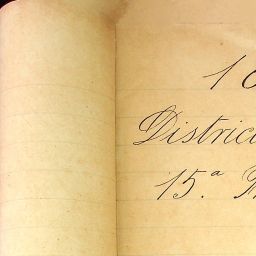 1
Distric
15.ª